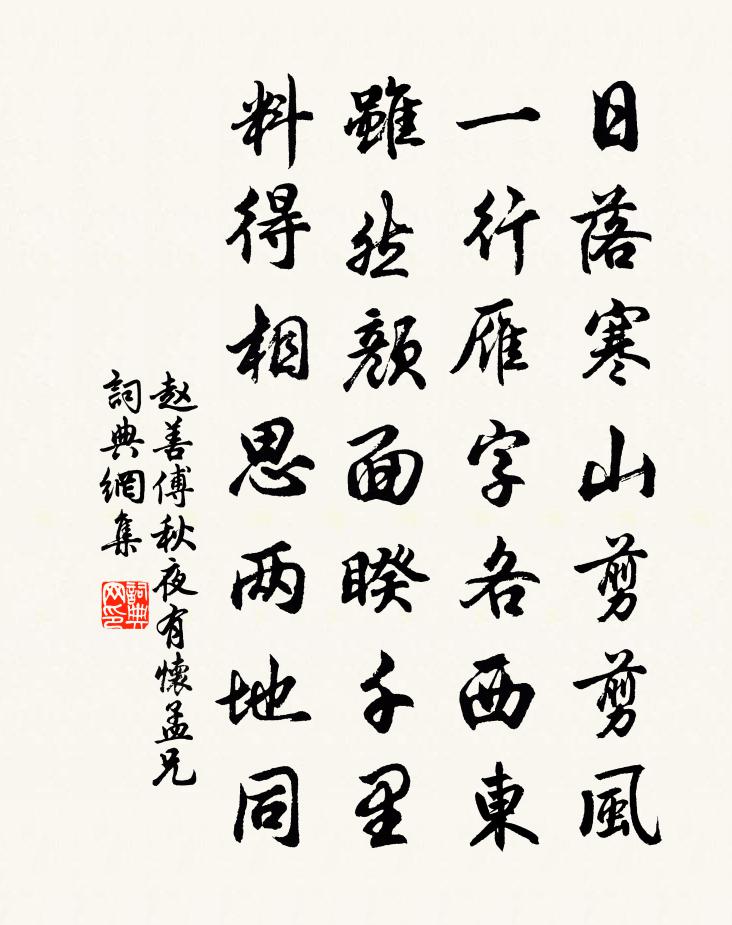 日落寒山剪剪風
一行雁字各西東
雖然顔面暌千里
料得相思两地同
赵善傅秋夜有懷孟兄
詞典網集
詞典网印